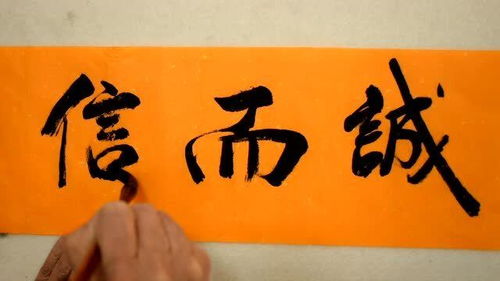 誠而信